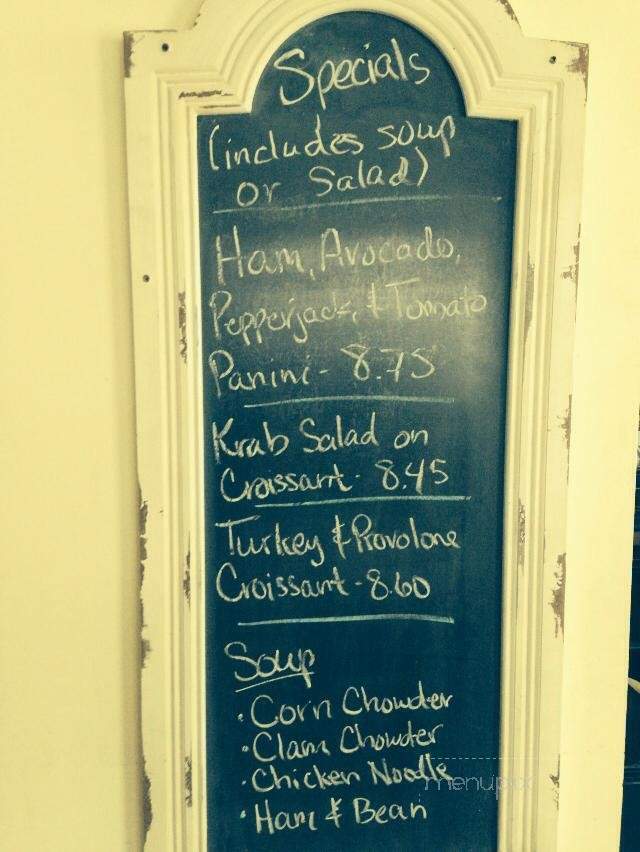 Specials
(includes soup
or Salad)
Ham, Avocado,
Pepperjack, & Tomato
Panini - 8.75
Krab Salad on
Croissant - 8.45
Turkey & Provolone
Croissant - 8.60
Soup
· Corn Chowder
· Clam Chowder
· Chicken Noodle
· Ham & Bean
menupix